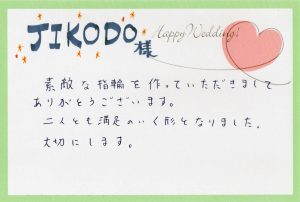 JIKODO様
Happy Wedding!
素敵な指輪を作っていただきまして
ありがとうございます。
二人とも満足のいく形となりました。
大切にします。